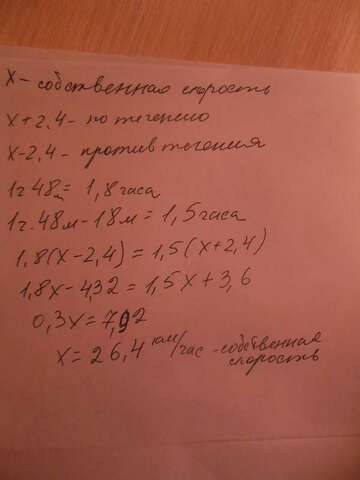 x - собственная скорость
x+2,4 - по течению
x-2,4 - против течения
1ч 48м = 1,8 часа
1ч. 48м - 18м = 1,5 часа
1,8(x-2,4) = 1,5(x+2,4)
1,8x - 4,32 = 1,5x + 3,6
0,3x = 7,92
x = 26,4 км/час - собственная
скорость